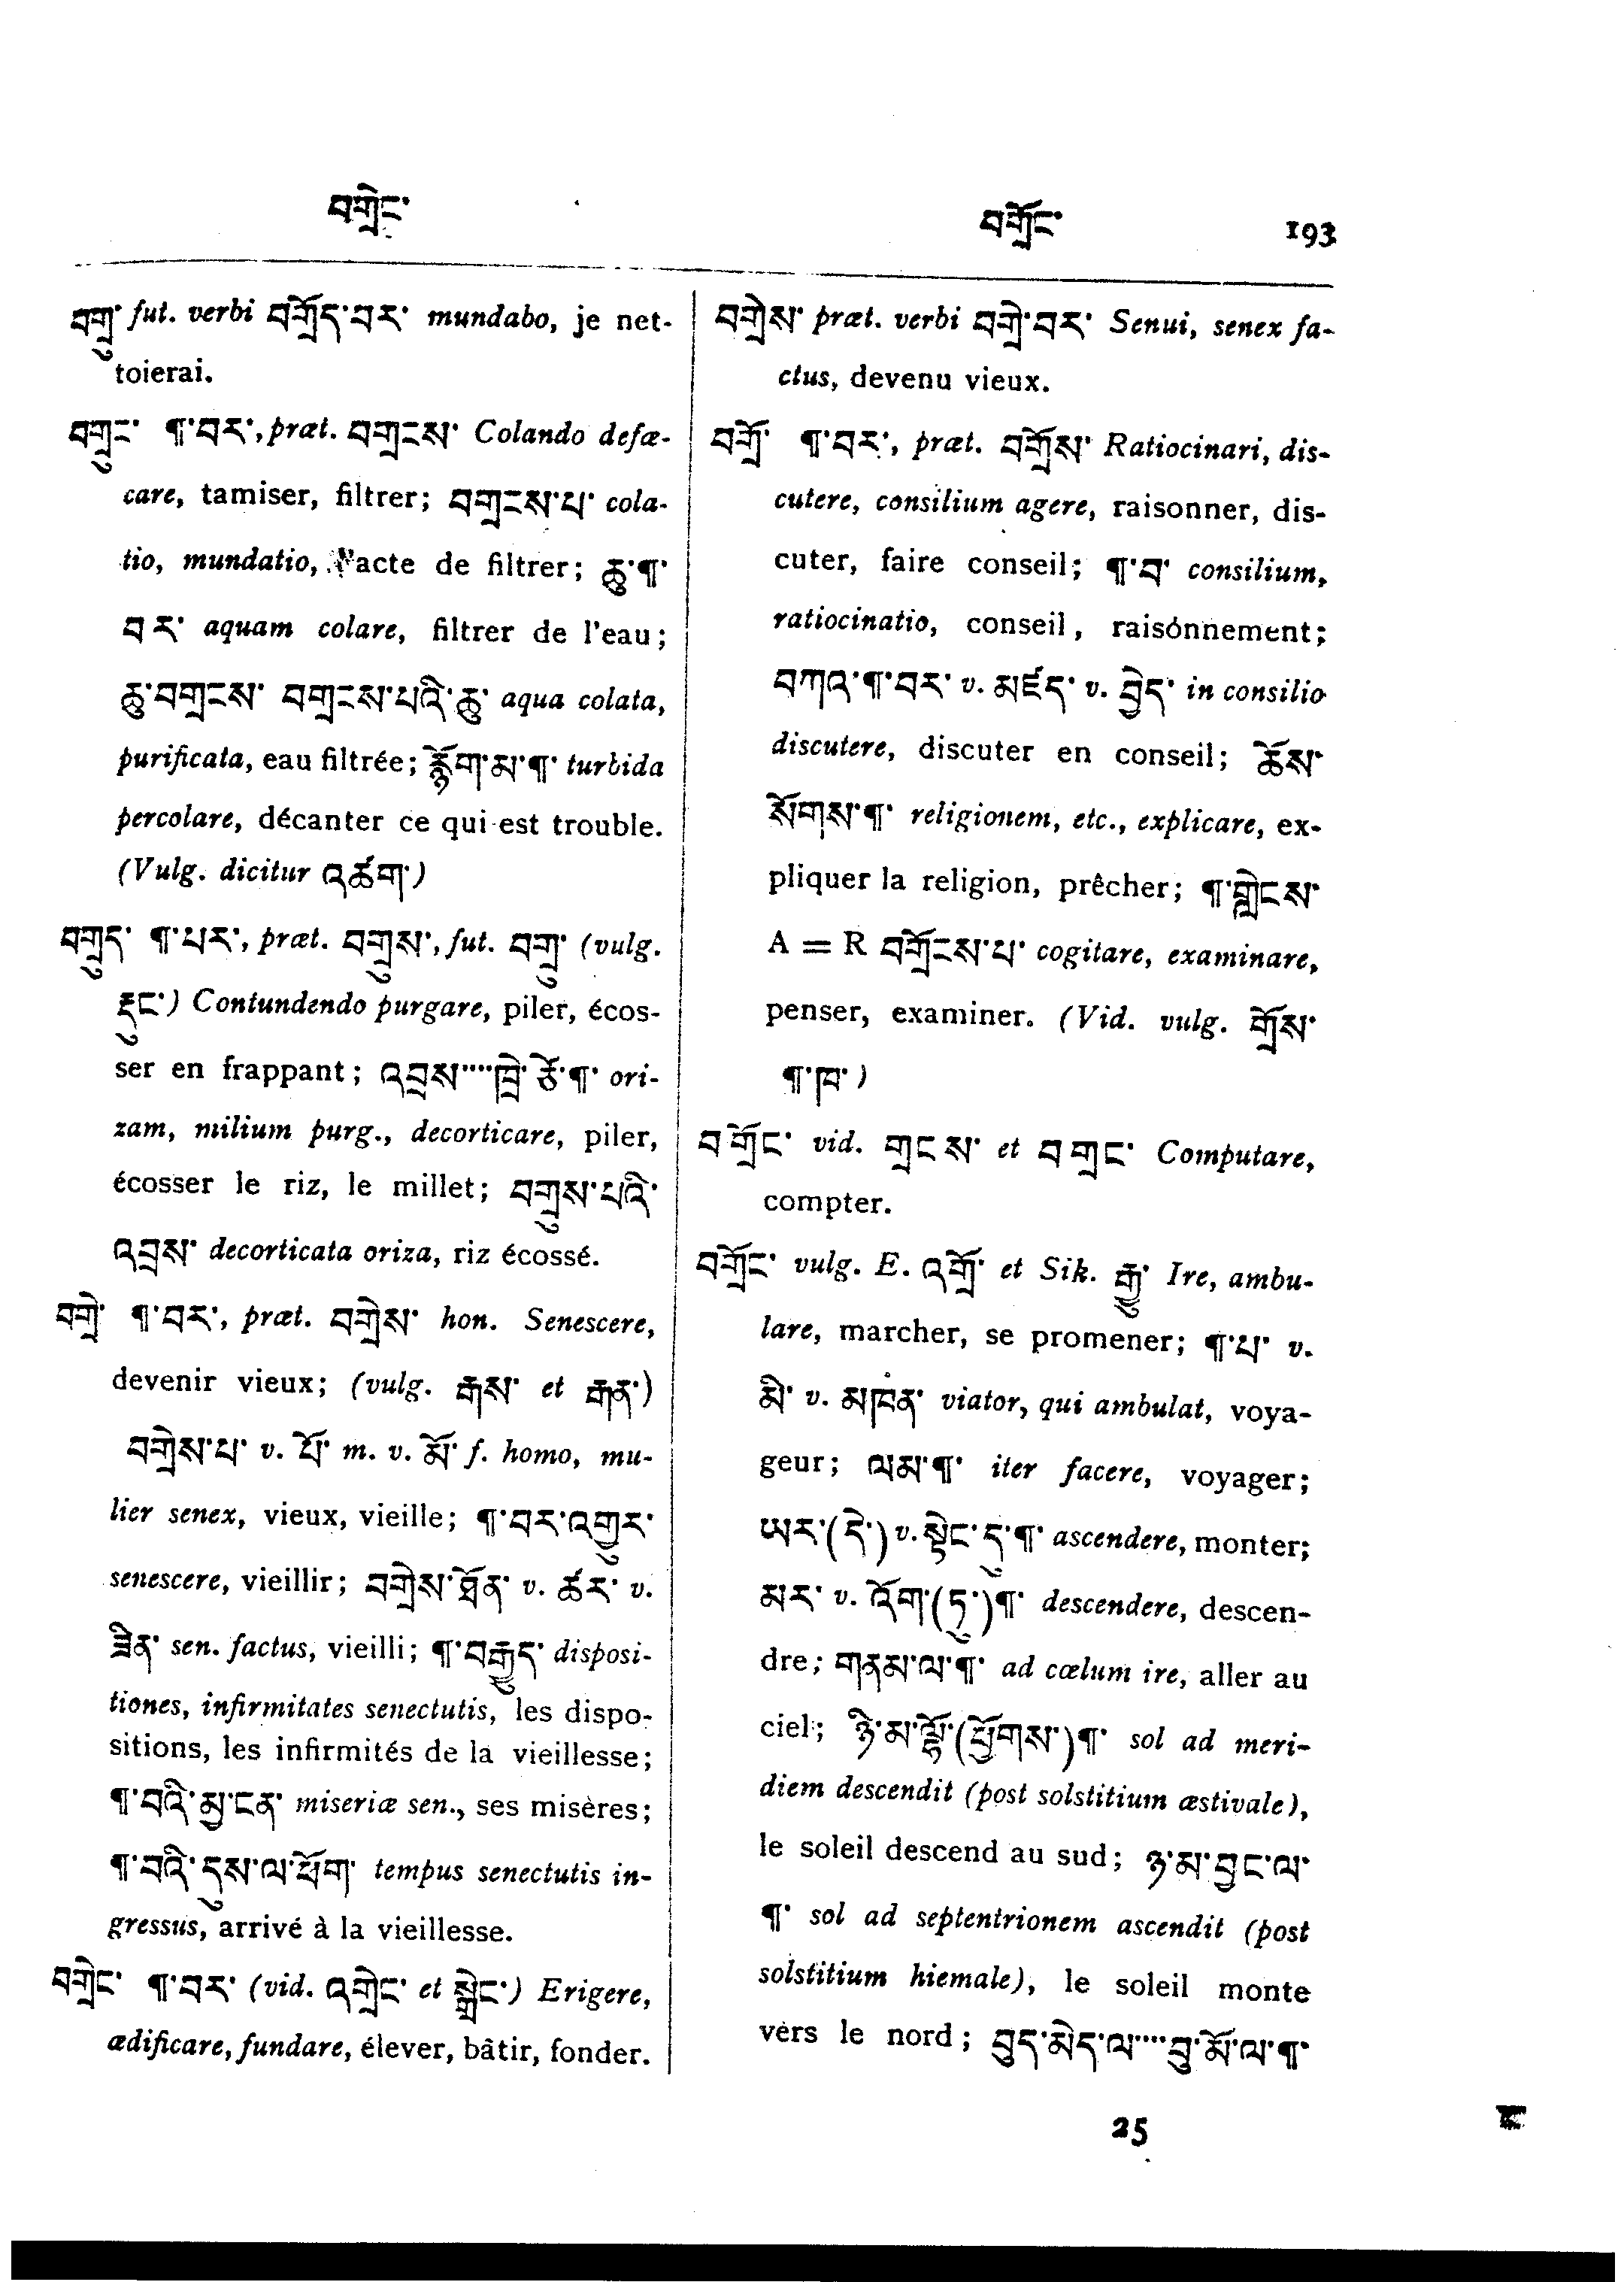 བགྲེང་
བགྲོང་ 193
བགྲུ་ fut. verbi བགྲོད་བར་ mundabo, je net-
toierai.
བགྲུང་ ¶་བར་, præt. བགྲངས་ Colando defæ-
care, tamiser, filtrer; བགྲངས་པ་ cola-
tio, mundatio, l'acte de filtrer; ཆུ་¶་
བར་ aquam colare, filtrer de l'eau;
ཆུ་བགྲངས་ བགྲངས་པའི་ཆུ་ aqua colata,
purificata, eau filtrée; རྙོག་མ་¶་ turbida
percolare, décanter ce qui est trouble.
(Vulg. dicitur འཚག་)
བགྲུད་ ¶་པར་, præt. བགྲུས་, fut. བགྲུ་ (vulg.
རྡུང་) Contundendo purgare, piler, écos-
ser en frappant; འབྲས་····ཁྲེ་ཙེ་¶་ ori-
zam, milium purg., decorticare, piler,
écosser le riz, le millet; བགྲུས་པའི་
འབྲས་ decorticata oriza, riz écossé.
བགྲེ་ ¶་བར་, præt. བགྲེས་ hon. Senescere,
devenir vieux; (vulg. རྒས་ et རྒན་)
བགྲེས་པ་ v. པོ་ m. v. མོ་ f. homo, mu-
lier senex, vieux, vieille; ¶་བར་འགྱུར་
senescere, vieillir; བགྲེས་ཐོན་ v. ཚར་ v.
ཟིན་ sen. factus, vieilli; ¶་བརྒྱུད་ disposi-
tiones, infirmitates senectutis, les dispo-
sitions, les infirmités de la vieillesse;
¶་བའི་མྱ་ངན་ miseriæ sen., ses misères;
¶་བའི་དུས་ལ་ཕོག་ tempus senectutis in-
gressus, arrivé à la vieillesse.
བགྲེང་ ¶་བར་ (vid. འགྲེང་ et སྒྲེང་) Erigere,
ædificare, fundare, élever, bâtir, fonder.
བགྲེས་ præt. verbi བགྲེ་བར་ Senui, senex fa-
ctus, devenu vieux.
བགྲོ་ ¶་བར་, præt. བགྲོས་ Ratiocinari, dis-
cutere, consilium agere, raisonner, dis-
cuter, faire conseil; ¶་བ་ consilium,
ratiocinatio, conseil, raisonnement;
བཀའ་¶་བར་ v. མཛད་ v. བྱེད་ in consilio
discutere, discuter en conseil; ཆོས་
སོགས་¶་ religionem, etc., explicare, ex-
pliquer la religion, prêcher; ¶་གླེངས་
A = R བགྲོངས་པ་ cogitare, examinare,
penser, examiner. (Vid. vulg. གྲོས་
¶་ཁ་)
བགྲོང་ vid. གྲངས་ et བགྲང་ Computare,
compter.
བགྲོང་ vulg. E. འགྲོ་ et Sik. རྒྱུ་ Ire, ambu-
lare, marcher, se promener; ¶་པ་ v.
མི་ v. མཁན་ viator, qui ambulat, voya-
geur; ལམ་¶་ iter facere, voyager;
ཡར་(དེ་) v. སྟེང་དུ་¶་ ascendere, monter;
མར་ v. འོག་(ཏུ་)¶་ descendere, descen-
dre; གནམ་ལ་¶་ ad cœlum ire, aller au
ciel; ཉི་མ་ལྷོ་(ཕྱོགས་)¶་ sol ad meri-
diem descendit (post solstitium æstivale),
le soleil descend au sud; ཉ་མ་བྱང་ལ་
¶་ sol ad septentrionem ascendit (post
solstitium hiemale), le soleil monte
vers le nord; བུད་མེད་ལ་····བུ་མོ་ལ་¶་
25